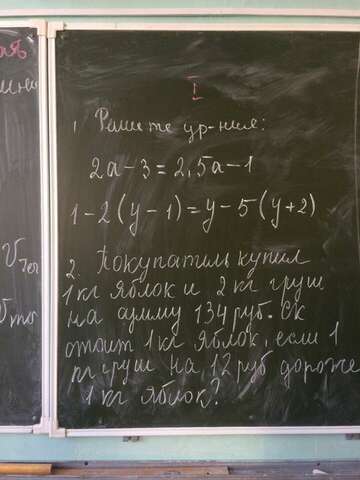 I
1. Решите ур-ния:
2a - 3 = 2,5a - 1
1 - 2(y - 1) = y - 5(y + 2)
2. Покупатель купил
1 кг яблок и 2 кг груш
на сумму 134 руб. Ск
стоит 1 кг яблок, если 1
кг груш на 12 руб дороже
1 кг яблок?